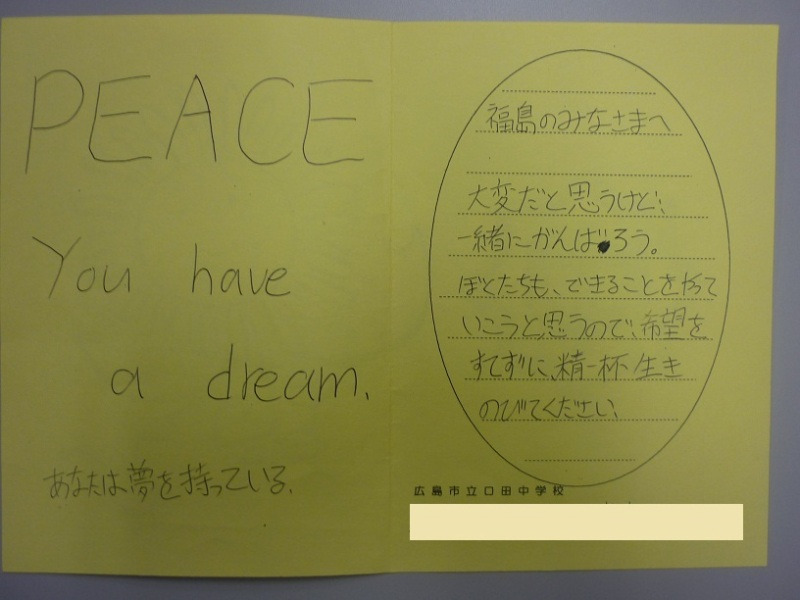 PEACE
You have
a dream.
あなたは夢を持っている.
福島のみなさまへ
大変だと思うけど、
一緒にがんばろう。
ぼくたちも、できることをやって
いこうと思うので、希望を
すてずに、精一杯生き
のびてください、
広島市立口田中学校